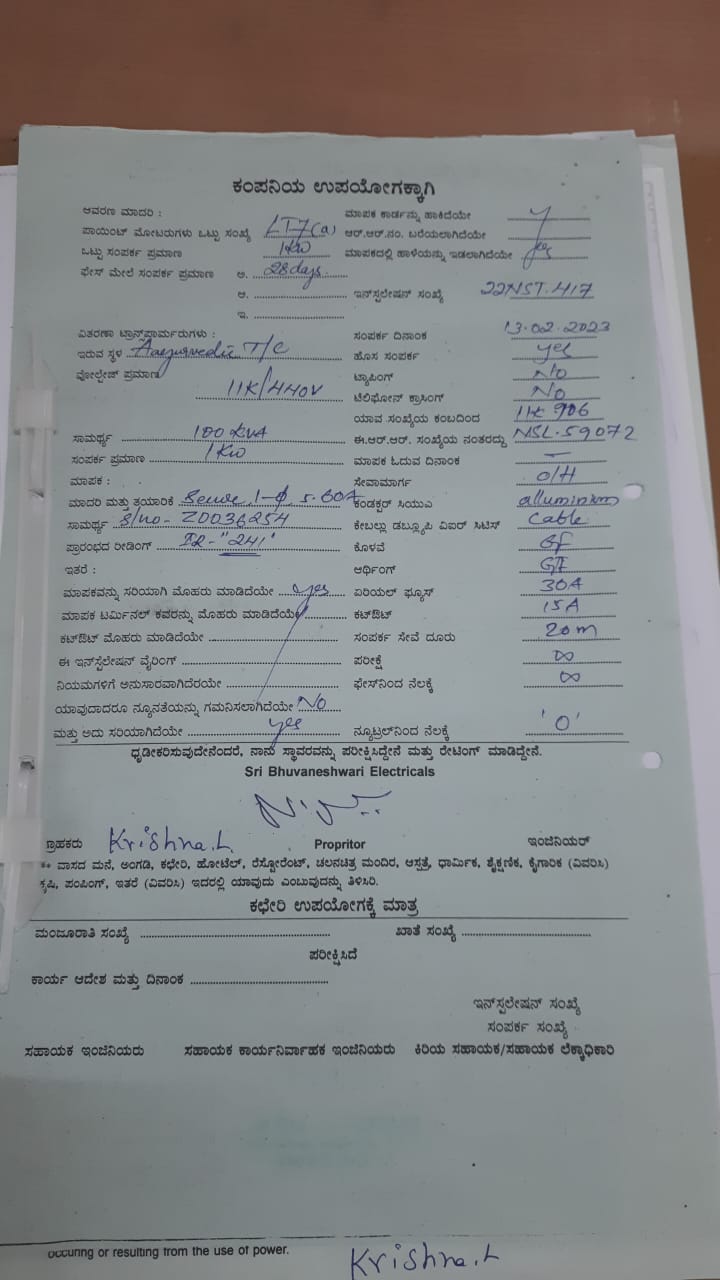 ಕಂಪನಿಯ ಉಪಯೋಗಕ್ಕಾಗಿ
ಆವರಣ ಮಾದರಿ : ಮಾಪಕ ಕಾರ್ಡನ್ನು ಹಾಕಿದೆಯೇ y
ಪಾಯಿಂಟ್ ಮೋಟರುಗಳು ಒಟ್ಟು ಸಂಖ್ಯೆ LT7(a) ಆರ್.ಆರ್.ನಂ. ಬರೆಯಲಾಗಿದೆಯೇ
ಒಟ್ಟು ಸಂಪರ್ಕ ಪ್ರಮಾಣ 1KW ಮಾಪಕದಲ್ಲಿ ಹಾಳೆಯನ್ನು ಇಡಲಾಗಿದೆಯೇ yes
ಫೇಸ್ ಮೇಲೆ ಸಂಪರ್ಕ ಪ್ರಮಾಣ ಅ. 28days
ಆ. ಇನ್ಸ್ಟಲೇಷನ್ ಸಂಖ್ಯೆ 22NST.417
ಇ.
ವಿತರಣಾ ಟ್ರಾನ್ಸ್‌ಫಾರ್ಮರುಗಳು : ಸಂಪರ್ಕ ದಿನಾಂಕ 13.02.2023
ಇರುವ ಸ್ಥಳ T/C ಹೊಸ ಸಂಪರ್ಕ yes
ವೋಲ್ಟೇಜ್ ಪ್ರಮಾಣ 11K/440V ಟ್ಯಾಪಿಂಗ್ No
ಟೆಲಿಫೋನ್ ಕ್ರಾಸಿಂಗ್ No
ಯಾವ ಸಂಖ್ಯೆಯ ಕಂಬದಿಂದ 906
ಸಾಮರ್ಥ್ಯ 100 KVA ಈ.ಆರ್.ಆರ್. ಸಂಖ್ಯೆಯ ನಂತರದ್ದು NSL.59072
ಸಂಪರ್ಕ ಪ್ರಮಾಣ 1KW ಮಾಪಕ ಓದುವ ದಿನಾಂಕ –
ಮಾಪಕ : ಸೇವಾಮಾರ್ಗ O/H
ಮಾದರಿ ಮತ್ತು ತಯಾರಿಕೆ 1-Φ, 5-60A ಕಂಡಕ್ಟರ್ ಸಿಯುವಿ alluminium
ಸಾಮರ್ಥ್ಯ S/no- Z0036254 ಕೇಬಲ್ಲು ಡಬ್ಲ್ಯೂಪಿ ವಿಐರ್ ಸಿಟಿಸ್ Cable
ಪ್ರಾರಂಭದ ರೀಡಿಂಗ್ IR-"241" ಕೊಳವೆ GI
ಇತರೆ : ಆರ್ಥಿಂಗ್ GI
ಮಾಪಕವನ್ನು ಸರಿಯಾಗಿ ಮೊಹರು ಮಾಡಿದೆಯೇ yes ಏರಿಯಲ್ ಫ್ಯೂಸ್ 30A
ಮಾಪಕ ಟರ್ಮಿನಲ್ ಕವರನ್ನು ಮೊಹರು ಮಾಡಿದೆಯೇ ಕಟ್‌ಔಟ್ 15A
ಕಟ್‌ಔಟ್ ಮೊಹರು ಮಾಡಿದೆಯೇ ಸಂಪರ್ಕ ಸೇವೆ ದೂರು 20m
ಈ ಇನ್ಸ್ಟಲೇಷನ್ ವೈರಿಂಗ್ ಪರೀಕ್ಷೆ ∞
ನಿಯಮಗಳಿಗೆ ಅನುಸಾರವಾಗಿದೆರಯೇ ಫೇಸ್‌ನಿಂದ ನೆಲಕ್ಕೆ ∞
ಯಾವುದಾದರೂ ನ್ಯೂನತೆಯನ್ನು ಗಮನಿಸಲಾಗಿದೆಯೇ No
ಮತ್ತು ಅದು ಸರಿಯಾಗಿದೆಯೇ yes ನ್ಯೂಟ್ರಲ್‌ನಿಂದ ನೆಲಕ್ಕೆ 'O'
ಧೃಡೀಕರಿಸುವುದೇನೆಂದರೆ, ನಾನು ಸ್ಥಾವರವನ್ನು ಪರೀಕ್ಷಿಸಿದ್ದೇನೆ ಮತ್ತು ರೇಟಿಂಗ್ ಮಾಡಿದ್ದೇನೆ.
Sri Bhuvaneshwari Electricals
ಗ್ರಾಹಕರು Krishna.L Propritor ಇಂಜಿನಿಯರ್
** ವಾಸದ ಮನೆ, ಅಂಗಡಿ, ಕಛೇರಿ, ಹೋಟೆಲ್, ರೆಸ್ಟೋರೆಂಟ್, ಚಲನಚಿತ್ರ ಮಂದಿರ, ಆಸ್ಪತ್ರೆ, ಧಾರ್ಮಿಕ, ಶೈಕ್ಷಣಿಕ, ಕೈಗಾರಿಕ (ವಿವರಿಸಿ)
ಕೃಷಿ, ಪಂಪಿಂಗ್, ಇತರೆ (ವಿವರಿಸಿ) ಇದರಲ್ಲಿ ಯಾವುದು ಎಂಬುವುದನ್ನು ತಿಳಿಸಿರಿ.
ಕಛೇರಿ ಉಪಯೋಗಕ್ಕೆ ಮಾತ್ರ
ಮಂಜೂರಾತಿ ಸಂಖ್ಯೆ ಖಾತೆ ಸಂಖ್ಯೆ
ಪರೀಕ್ಷಿಸಿದೆ
ಕಾರ್ಯ ಆದೇಶ ಮತ್ತು ದಿನಾಂಕ
ಇನ್‌ಸ್ಟಲೇಷನ್ ಸಂಖ್ಯೆ
ಸಂಪರ್ಕ ಸಂಖ್ಯೆ
ಸಹಾಯಕ ಇಂಜಿನಿಯರು ಸಹಾಯಕ ಕಾರ್ಯನಿರ್ವಾಹಕ ಇಂಜಿನಿಯರು ಕಿರಿಯ ಸಹಾಯಕ/ಸಹಾಯಕ ಲೆಕ್ಕಾಧಿಕಾರಿ
occuring or resulting from the use of power.
Krishna.L